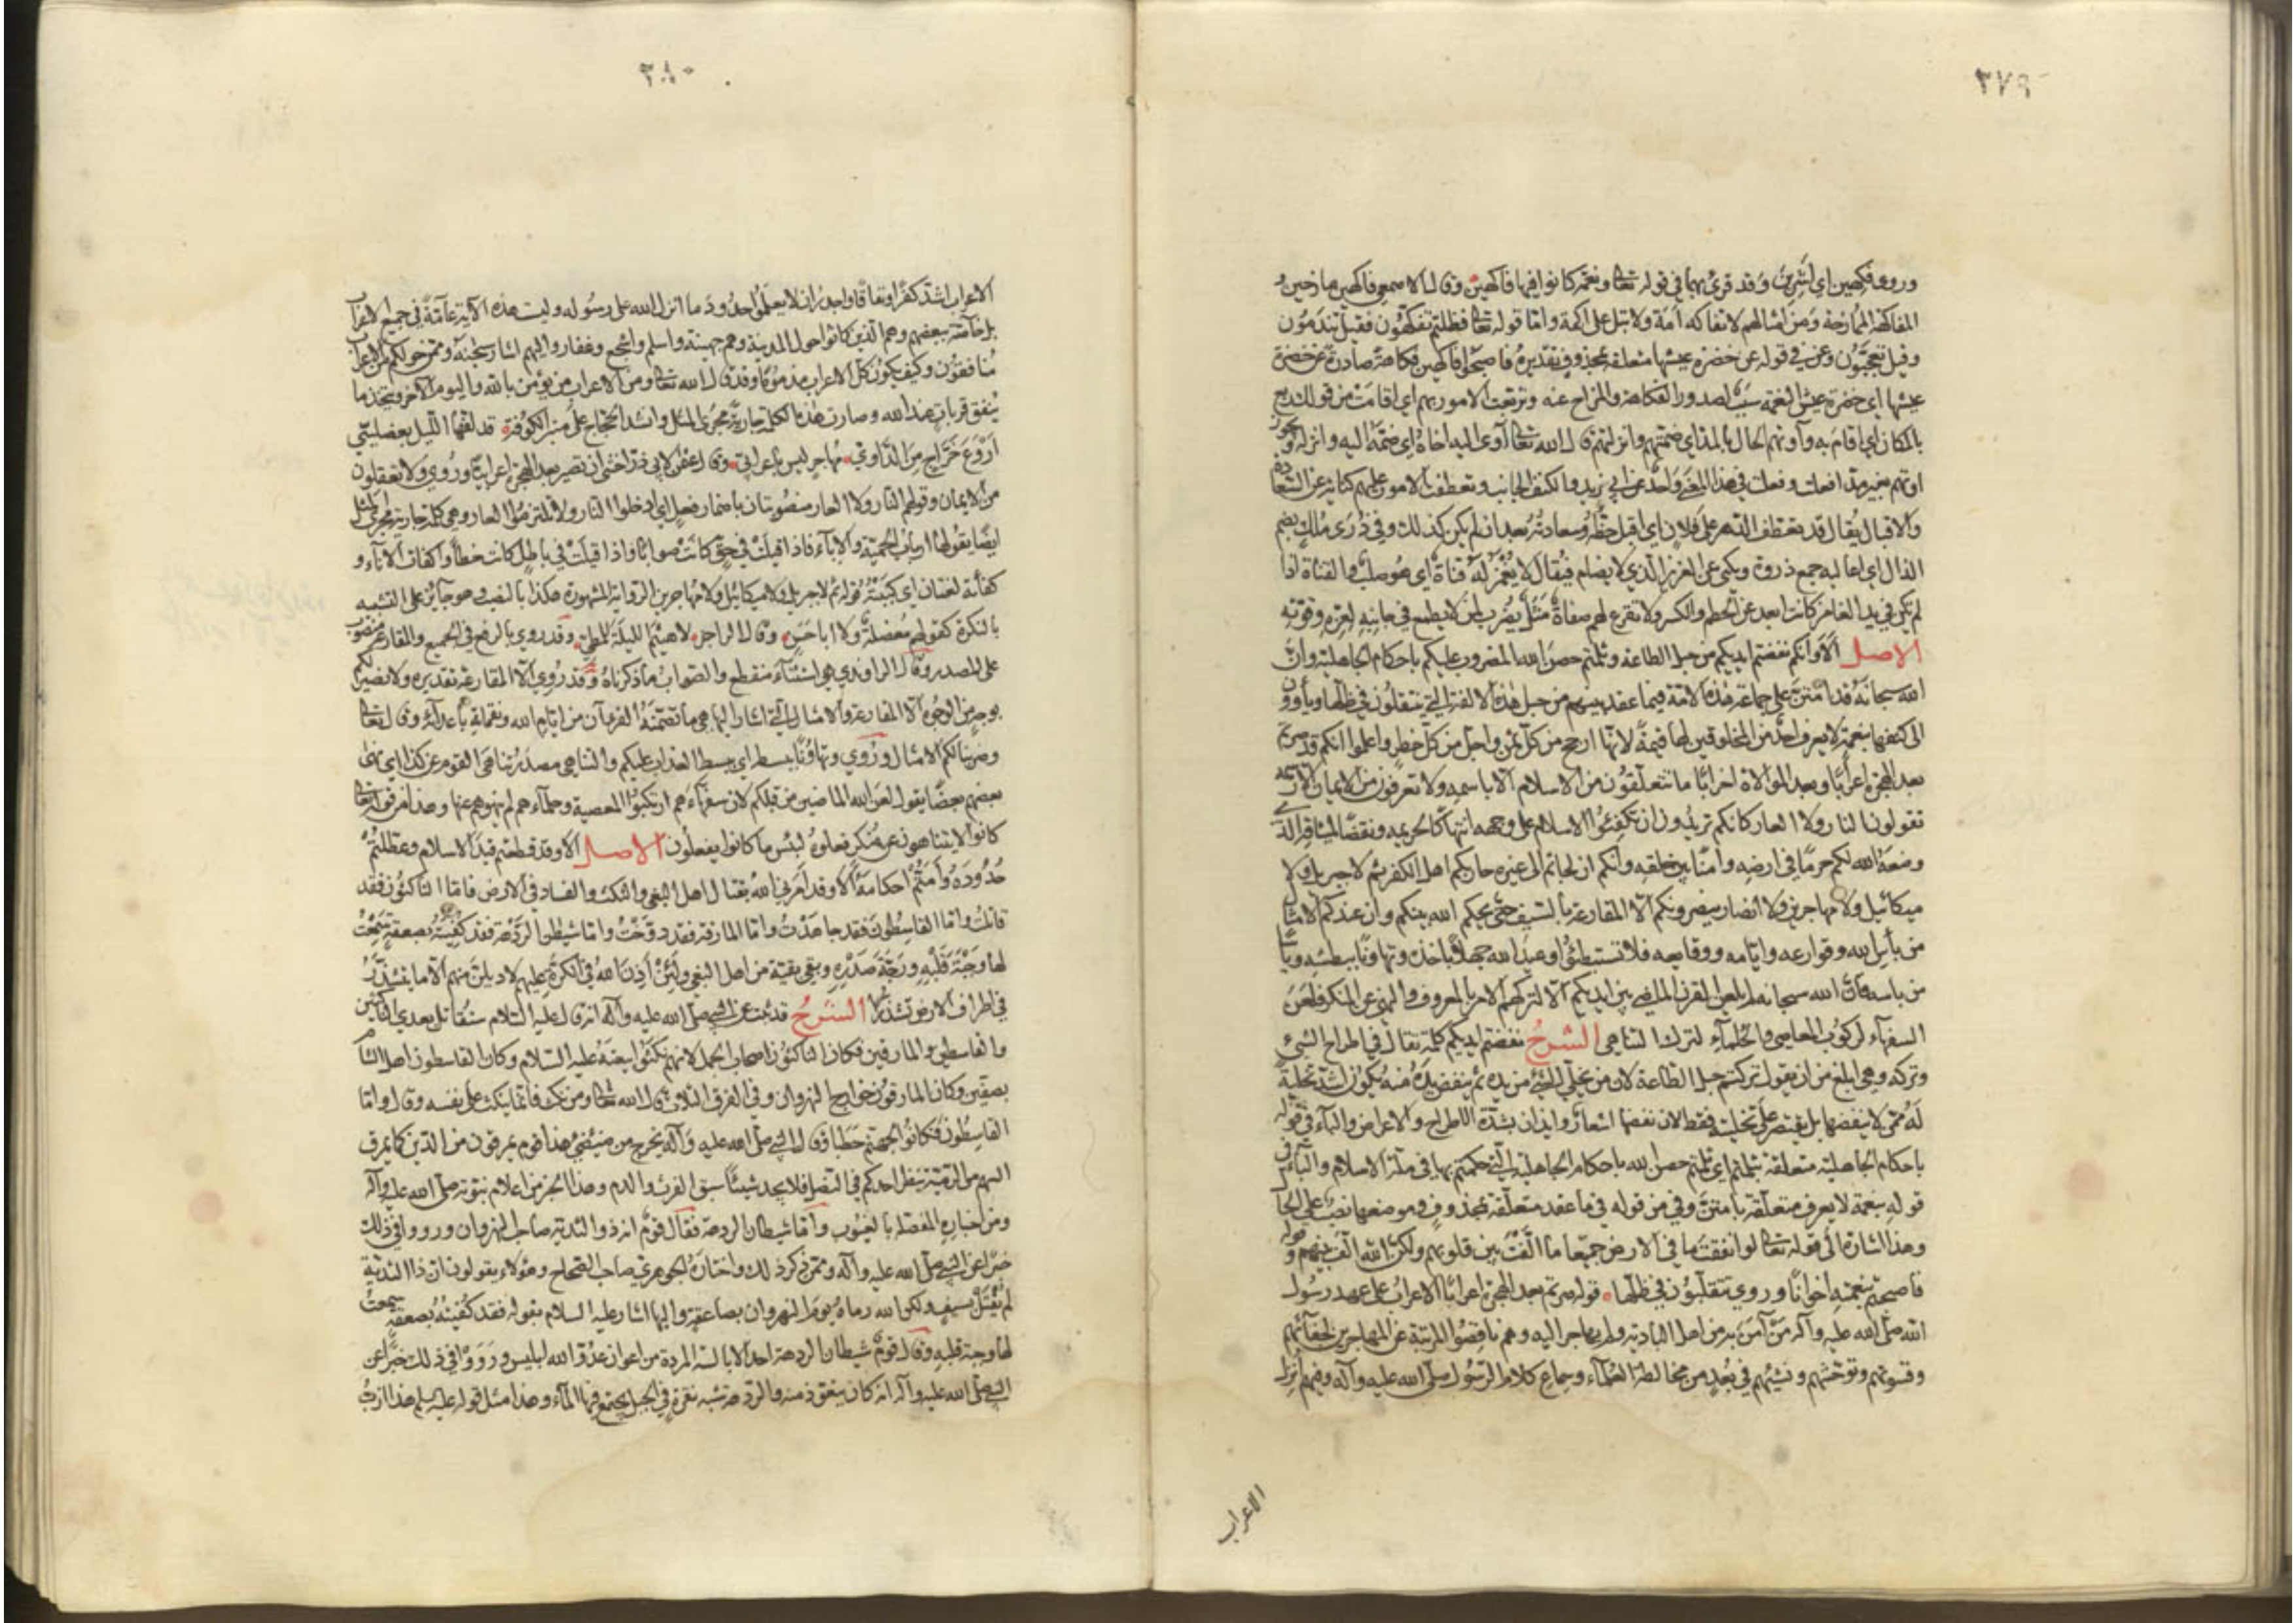 ٣٧٩
ورووه فكهين اي اشرين وقد قرئ بهما في قوله تعالى ونعمة كانوا فيها فاكهين وقال الاصمعي فاكهين مازحين و
المفاكهة الممازحة ومن امثالهم لا تفاكه امة ولا تبل على اكمة واما قوله تعالى فظلتم تفكهون فقيل تندمون
وقيل تعجبون وعن في قوله عن خضرة عيشها متعلقة بمحذوف تقديره فاصبحوا فاكهين فكاهة صادرة عن خضرة
عيشها اي خضرة عيش النعمة سبب لصدور الفكاهة والمزاح عنه وتربعت الامور بهم اي اقامت من قولك ربع
بالمكان اي اقام به وآوتهم الحال بالمد اي ضمتهم وانزلتهم قال الله تعالى آوى اليه اخاه اي ضمه اليه وانزله ويجوز
اوتهم بغير مد افعلت وفعلت في هذا المعنى واحد عن ابي زيد والكنف الجانب وتعطفت الامور عليهم كناية عن السعادة
والاقبال يقال قد تعطف الدهر على فلان اي اقبل حظه وسعادته بعد ان لم يكن كذلك وفي ذرى ملك بضم
الذال اي اعاليه جمع ذروة ويكنى عن العزيز الذي لا يضام فيقال لا يغمز له قناة اي هو صلب والقناة اذا
لم تكن في يد الغامز كانت ابعد عن الحطم والكسر ولا تقرع لهم صفاة مثل يضرب لمن لا يطمع في جانبه لعزه وقوته
الاصل الا وانكم نفضتم ايديكم من حبل الطاعة وثلمتم حصن الله المضروب عليكم باحكام الجاهلية وان
الله سبحانه قد امتن على جماعة هذه الامة فيما عقد بينهم من حبل هذه الالفة التي ينتقلون في ظلها ويأوون
الى كنفها بنعمة لا يعرف احد من المخلوقين لها قيمة لانها ارجح من كل ثمن واجل من كل خطر واعلموا انكم قد صرتم
بعد الهجرة اعرابا وبعد الموالاة احزابا ما تتعلقون من الاسلام الا باسمه ولا تعرفون من الايمان الا رسمه
تقولون النار ولا العار كانكم تريدون ان تكفئوا الاسلام على وجهه انتهاكا لحريمه ونقضا لميثاقه الذي
وضعه الله لكم حرما في ارضه وامنا بين خلقه وانكم ان لجأتم الى غيره حاربكم اهل الكفر ثم لا جبريل ولا
ميكائيل ولا مهاجرين ولا انصار ينصرونكم الا المقارعة بالسيف حتى يحكم الله بينكم وان عندكم الامثال
من بأس الله وقوارعه وايامه ووقائعه فلا تستبطئوا وعيد الله جهلا باخذه وتهاونا ببطشه ويأسا
من بأسه فان الله سبحانه لم يلعن القرن الماضي بين ايديكم الا لتركهم الامر بالمعروف والنهي عن المنكر فلعن
السفهاء لركوب المعاصي والحلماء لترك التناهي الشرح نفضتم ايديكم كلمة تقال في اطراح الشيء
وتركه وهي ابلغ من ان يقول تركتم حبل الطاعة لان من يخلي الشيء من يده ثم ينفض يده منه يكون اشد تخلية
له ممن لا ينفضها بل يقتصر على تخليته فقط لان نفضها اشعار وايذان بشدة الاطراح والاعراض والباء في قوله
باحكام الجاهلية متعلقة بثلمتم اي ثلمتم حصن الله باحكام الجاهلية التي حكمتم بها في ملة الاسلام والباء في
قوله بنعمة لا يعرف متعلقة بامتن وفي من قوله في ما عقد متعلقة بمحذوف وموضعها نصب على الحال
وهذا اشارة الى قوله تعالى لو انفقت ما في الارض جميعا ما الفت بين قلوبهم ولكن الله الف بينهم وقوله
فاصبحتم بنعمته اخوانا وروي تتقلبون في ظلها قوله صرتم بعد الهجرة اعرابا الاعراب على عهد رسول
الله صلى الله عليه وآله من آمن به من اهل البادية ولم يهاجر اليه وهم ناقصوا المرتبة عن المهاجرين لجفائهم
وقسوتهم وتوحشهم ونشئهم في بعد من مخالطة العلماء وسماع كلام الرسول صلى الله عليه وآله وفيهم انزل
الاعراب
٣٨٠
الاعراب اشد كفرا ونفاقا واجدر ان لا يعلموا حدود ما انزل الله على رسوله وليست هذه الآية عامة في جميع الاعراب
بل خاصة ببعضهم وهم الذين كانوا حول المدينة وهم جهينة واسلم واشجع وغفار واليهم اشار سبحانه وممن حولكم من الاعراب
منافقون وكيف يكون كل الاعراب مذموما وقد قال الله تعالى ومن الاعراب من يؤمن بالله واليوم الآخر ويتخذ ما
ينفق قربات عند الله وصارت هذه الكلمة جارية مجرى المثل وانشد الحجاج على منبر الكوفة قد لفها الليل بعصلبي
اروع خراج من الداوي مهاجر ليس باعرابي وقال عثمن لابي ذر اخشى ان تصير بعد الهجرة اعرابيا وروي ولا تعقلون
من الايمان وقولهم النار ولا العار منصوبتان باضمار فعل اي ادخلوا النار ولا تلتزموا العار وهي كلمة جارية مجرى المثل
ايضا يقولها ارباب الحمية والاباء فاذا قيلت في حق كانت صوابا واذا قيلت في باطل كانت خطأ واكفأت الاناء و
كفأته لغتان اي كببته قوله ثم لا جبريل ولا ميكائيل ولا مهاجرين الرواية المشهورة هكذا بالنصب وهو جائز على التشبيه
بالنكرة كقولهم معضلة ولا ابا حسن وقال الراجز لا هيثم الليلة للمطي وقد روي بالرفع في الجميع والمقارعة منصوب
على المصدر وقال الراوندي هي استثناء منقطع والصواب ما ذكرناه وقد روي الا المقارعة تقديره ولا نصير لكم
بوجه من الوجوه الا المقارعة والامثال التي اشار اليها هي ما تضمنه القرءآن من ايام الله ونقماته باعدائه وقال تعالى
وضربنا لكم الامثال وروي وتهاونا ببسطه اي ببسط العذاب عليكم والتناهي مصدر تناهى القوم عن كذا اي نهى
بعضهم بعضا يقول لعن الله الماضين من قبلكم لان سفهاءهم ارتكبوا المعصية وحلماءهم لم ينهوهم عنها وهذا من قوله تعالى
كانوا لا يتناهون عن منكر فعلوه لبئس ما كانوا يفعلون الاصل الا وقد قطعتم قيد الاسلام وعطلتم
حدوده وامتم احكامه الا وقد امرني الله بقتال اهل البغي والنكث والفساد في الارض فاما الناكثون فقد
قاتلت واما القاسطون فقد جاهدت واما المارقة فقد دوخت واما شيطن الردهة فقد كفيته بصعقة سمعت
لها وجبة قلبه ورجة صدره وبقي بقية من اهل البغي ولئن اذن الله في الكرة عليهم لاديلن منهم الا ما يتشذر
في اطراف الارض تشذرا الشرح قد ثبت عن النبي صلى الله عليه وآله انه قال له عليه السلام ستقاتل بعدي الناكثين
والقاسطين والمارقين فكان الناكثون اصحاب الجمل لانهم نكثوا بيعته عليه السلام وكان القاسطون اهل الشام
بصفين وكان المارقون خوارج النهروان وفي الفرق الثلاث قال الله تعالى ومن نكث فانما ينكث على نفسه وقال واما
القاسطون فكانوا لجهنم حطبا وقال النبي صلى الله عليه وآله يخرج من ضئضئ هذا قوم يمرقون من الدين كما يمرق
السهم من الرمية ينظر احدكم في النصل فلا يجد شيئا سبق الفرث والدم وهذا الخبر من اعلام نبوته صلى الله عليه وآله
ومن اخباره المفصلة بالغيوب واما شيطان الردهة فقال قوم انه ذو الثدية صاحب النهروان ورووا في ذلك
خبرا عن النبي صلى الله عليه وآله وممن ذكر ذلك واختاره الجوهري صاحب الصحاح وهؤلاء يقولون ان ذا الثدية
لم يقتل بسيف ولكن الله رماه يوم النهروان بصاعقة واليها اشار عليه السلام بقوله فقد كفيته بصعقة سمعت
لها وجبة قلبه وقال قوم شيطان الردهة احد الابالسة المردة من اعوان عدو الله ابليس ورووا في ذلك خبرا عن
النبي صلى الله عليه وآله انه كان يتعوذ منه والردهة شبه نقرة في الجبل يجتمع فيها الماء وهذا مثل قوله عليه السلم هذا ازب